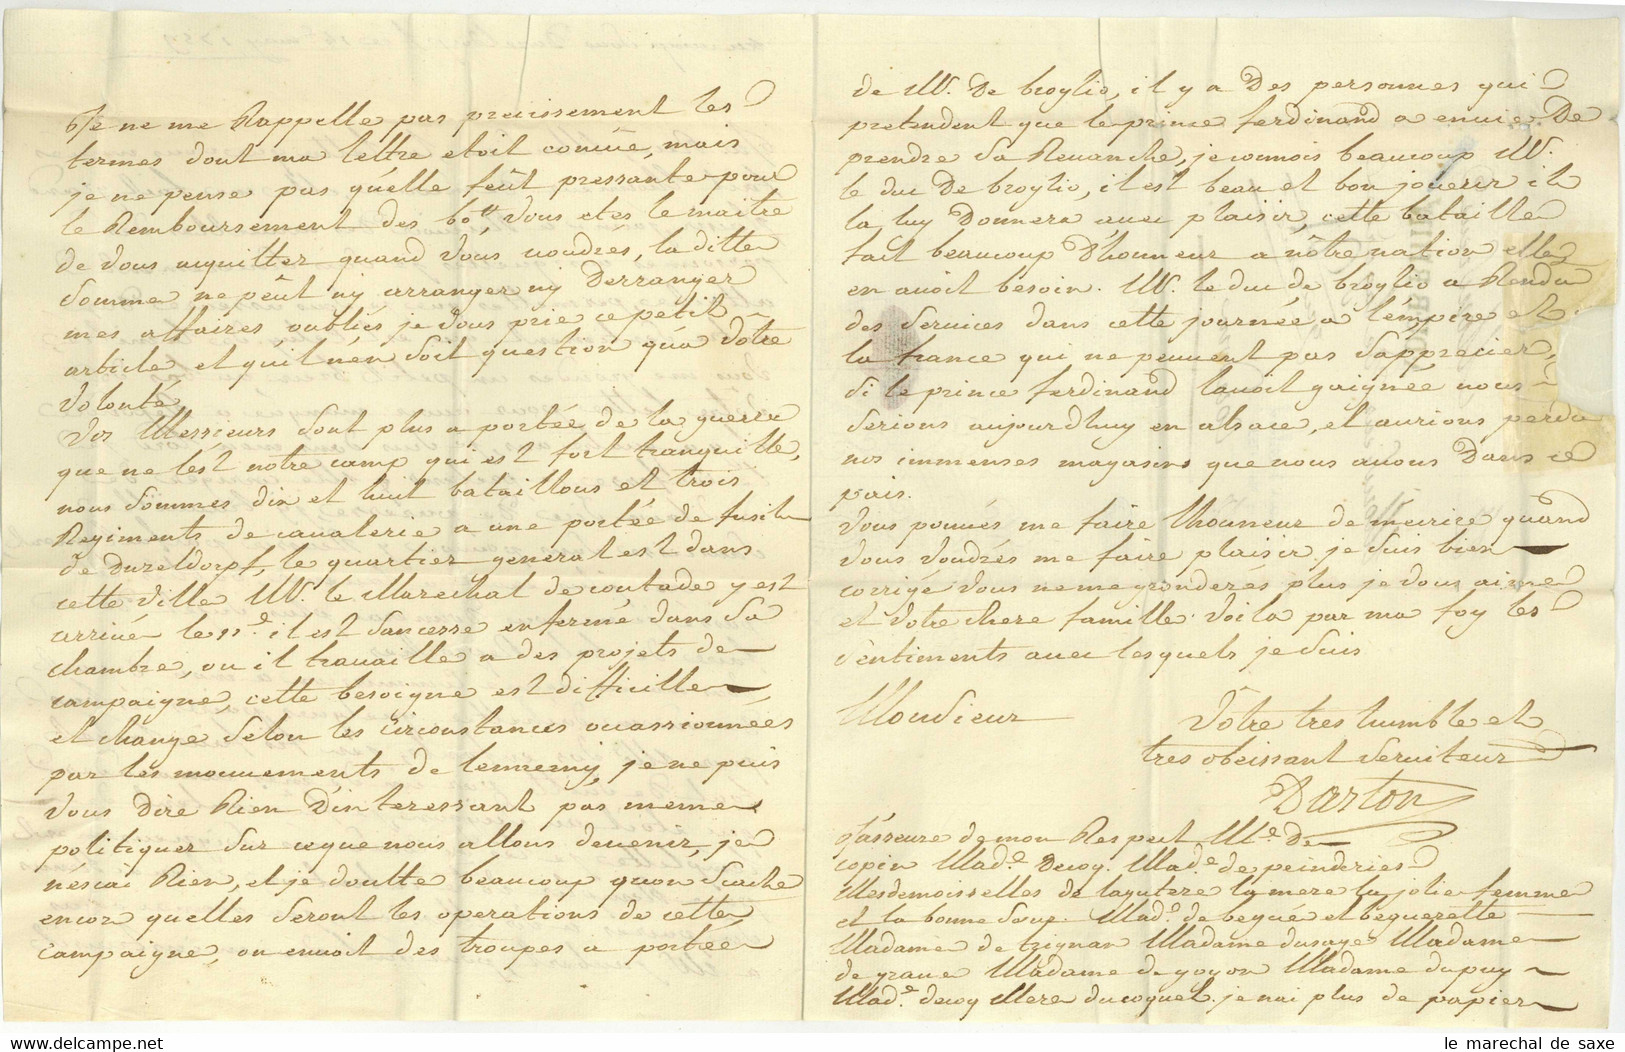 Je ne me Rappelle pas precissement les
termes dont ma lettre etoit concüe, mais
je ne pense pas quelle feût pressante pour
le Remboursement des bo.tt Vous etes le maitre
de vous acquitter quand Vous voudrés, la ditte
Somme ne peût ny arranger ny Derranger
mes affaires oubliés je Vous prie ce petit
article et qu'il n'en Soit question qu'a Vôtre
Volonté
Vos Messieurs Sont plus a portée de la guerre
que ne lest notre camp qui est fort tranquille,
nous Sommes dix et huit bataillons et trois
Regiments de cavalerie a une portée de fusil
de Duzeldorpf, le quartier general est dans
cette Ville M.r le Marechal de contade y est
arrivé le 11.e il est Sancesse enfermé dans Sa
chambre, ou il travaille a des projets de
campaigne, cette besoigne est difficille
et change Selon les circonstances occassionnées
par les mouvements de lennemy, je ne puis
Vous Dire Rien D'interessant pas meme
politiquer Sur ceque nous allons devenir, je
nescai Rien, et je doutte beaucoup quon Scache
encor quelles Seront les operations de cette
campaigne, on envoit des troupes a portée
de M.r De broglio, il y a Des personnes qui
pretendent que le prince ferdinand a envie De
prendre Sa Revanche, je connois beaucoup M.r
le duc De broglio, il est beau et bon joueur il
la luy Donnera avec plaisir, cette bataille
fait beaucoup D'honneur a nôtre nation elle
en avoit besoin. M.r le duc de broglio a Rendu
des Services dans cette journée a l'empire et
la france qui ne peuvent pas S'apprecier,
Si le prince ferdinand lavoit gaignée nous
Serions aujourdhuy en alsace, et aurions perdu
nos immenses magasins que nous avons Dans ce
pais.
Vous pouvés me faire l'honneur de m'ecrire quand
Vous Voudrés me faire plaisir, je Suis bien
corrigé Vous ne me gronderés plus je Vous aime
et Vôtre chere famille Voila par ma foy les
Sentiments avec lesquels je Suis
Monsieur
Vôtre tres humble et
tres obeissant Serviteur
Darton
J'asseure de mon Respect M.e De
copin Mad.e Decoy. Mad.e de peinderies
Mesdemoisselles de laguzere la mere la jolie femme
et la bonne Soup. Mad.e de begué et beguerette
Madame de tzignan Madame dusage Madame
de grave Madame de goyon Madame dupuy
Mad.e decoy Mere ducoquel. je nai plus de papier
le marechal de saxe